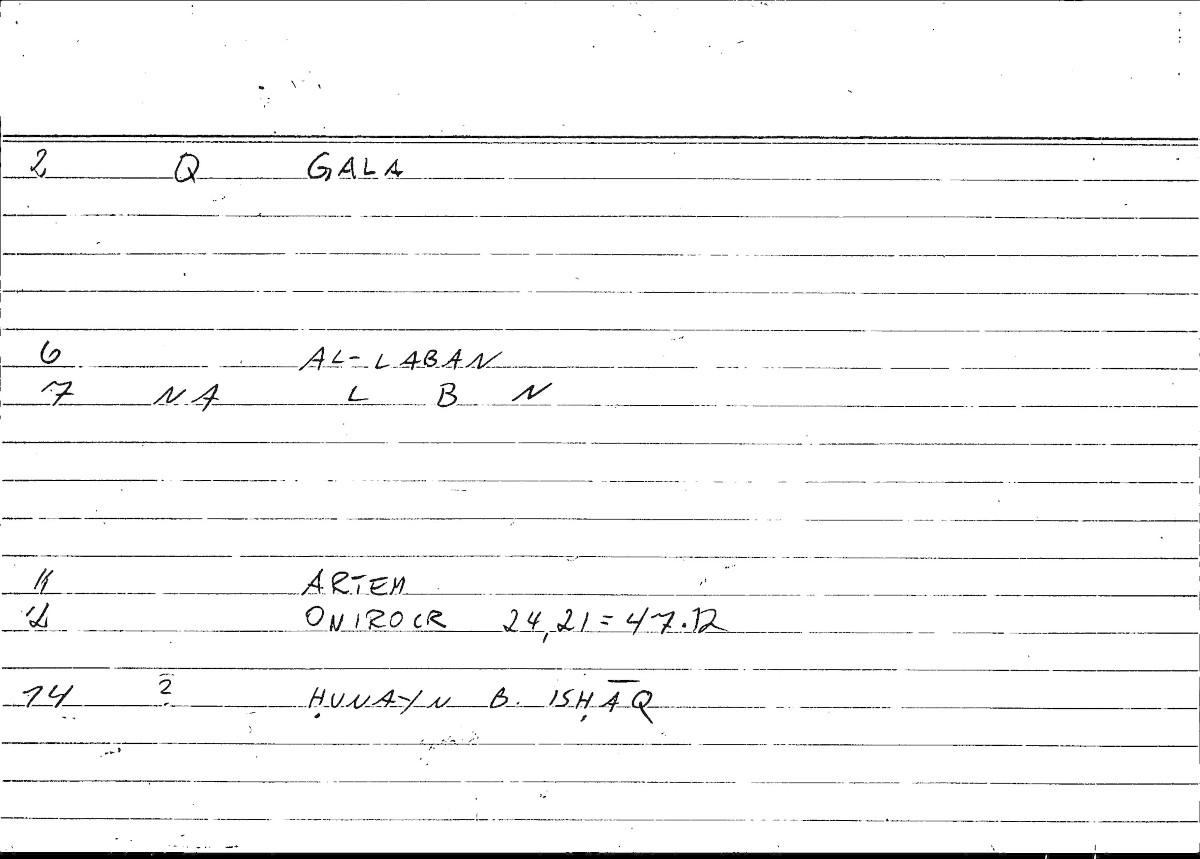 2 Q GALA
6 AL-LABAN
7 NA L B N
11 ARTEM
12 ONIROCR 24,21=47.12
14 2 ḤUNAYN B. ISḤĀQ